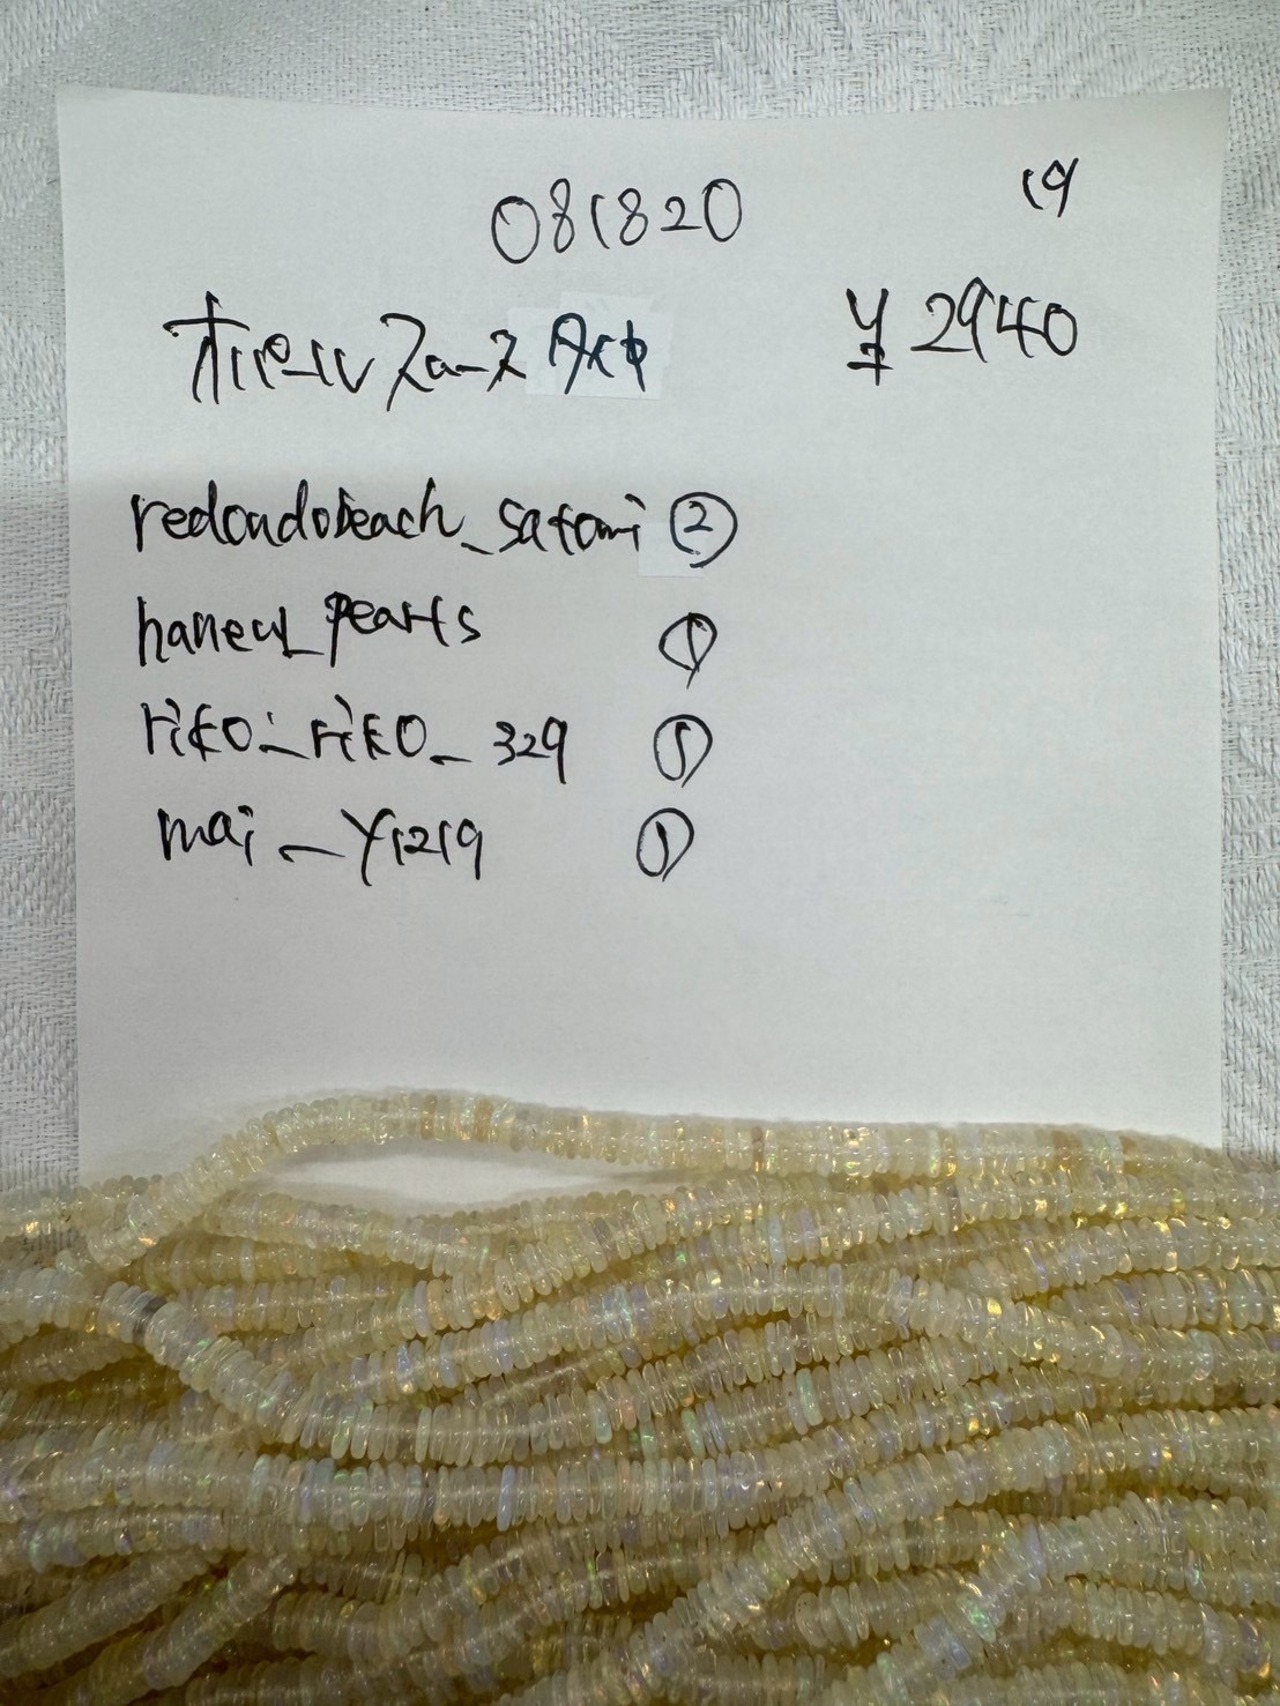 081820 19
オパール ¥2940
redondobeach_satomi ②
haneul_pearls ①
riko_riko_329 ⑤
mai_y1219 ①